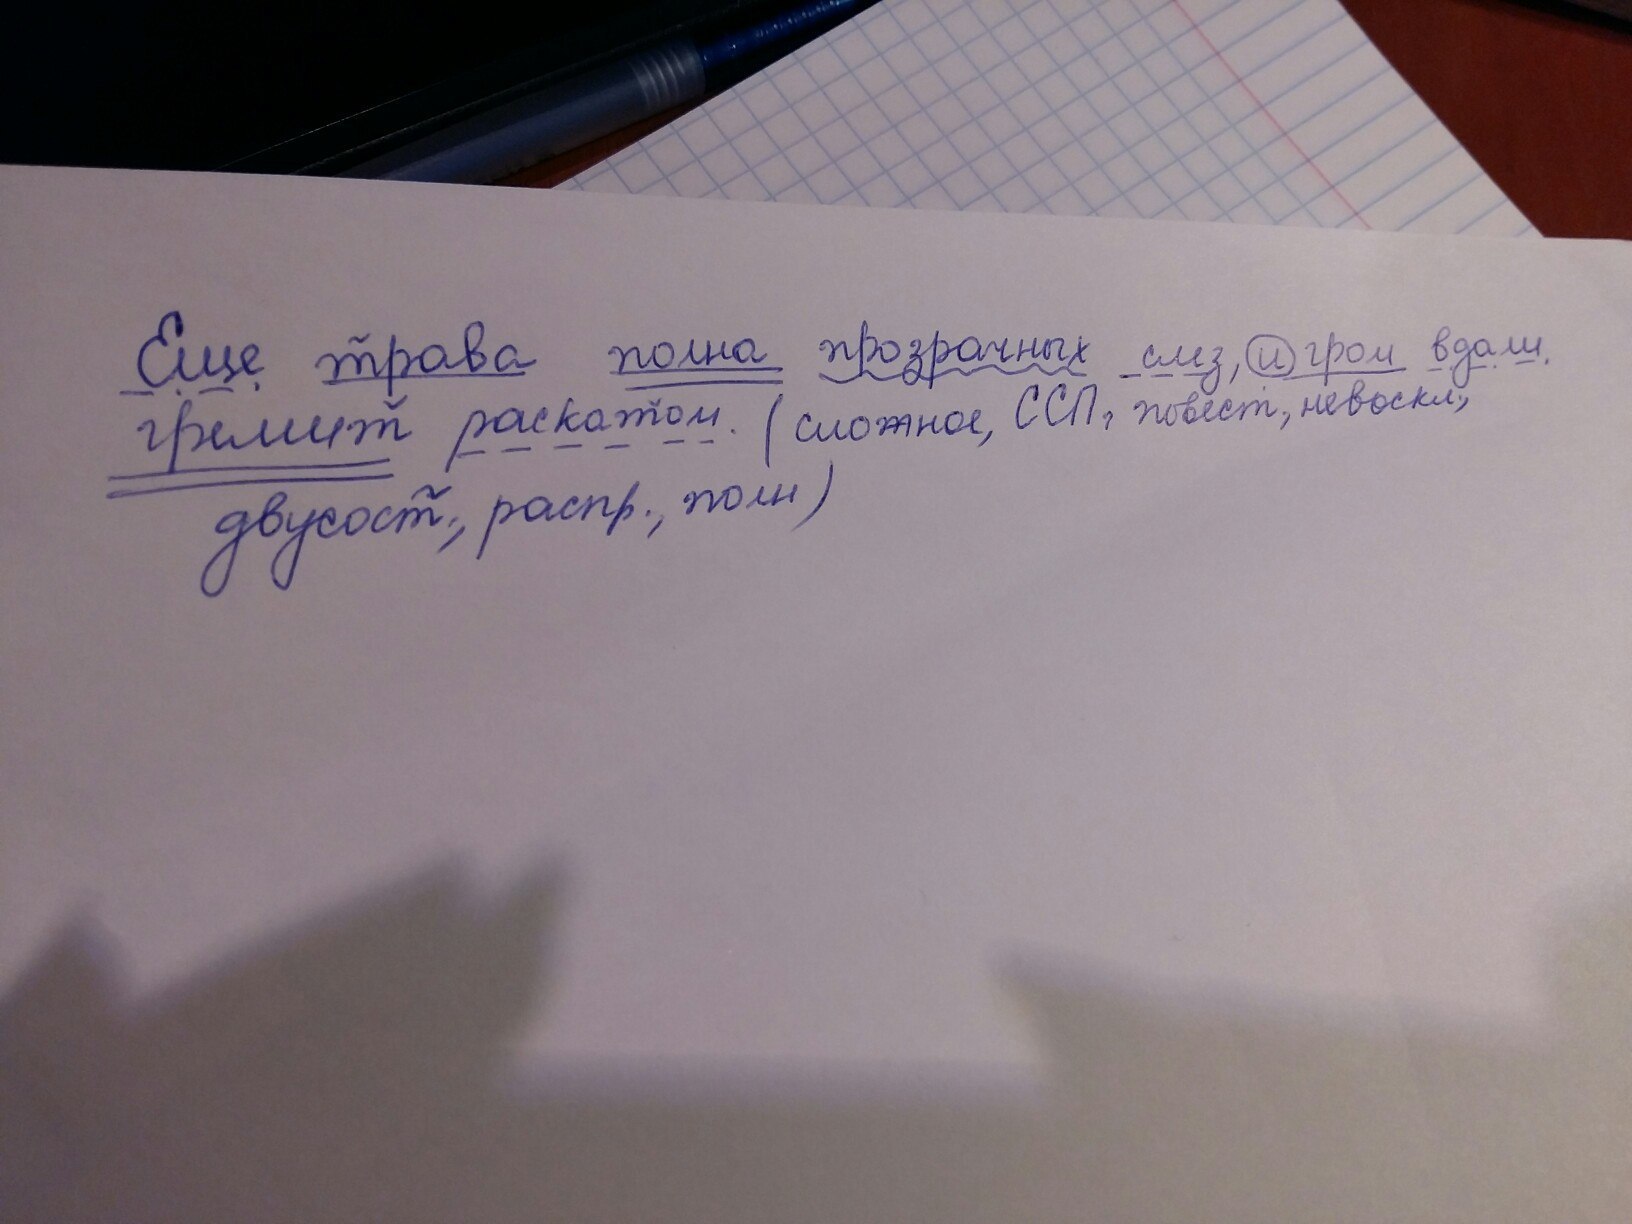 Еще трава полна прозрачных слез, и гром вдали
гремит раскатом. (сложное, ССП, повест., невоскл.,
двусост., распр., полн)